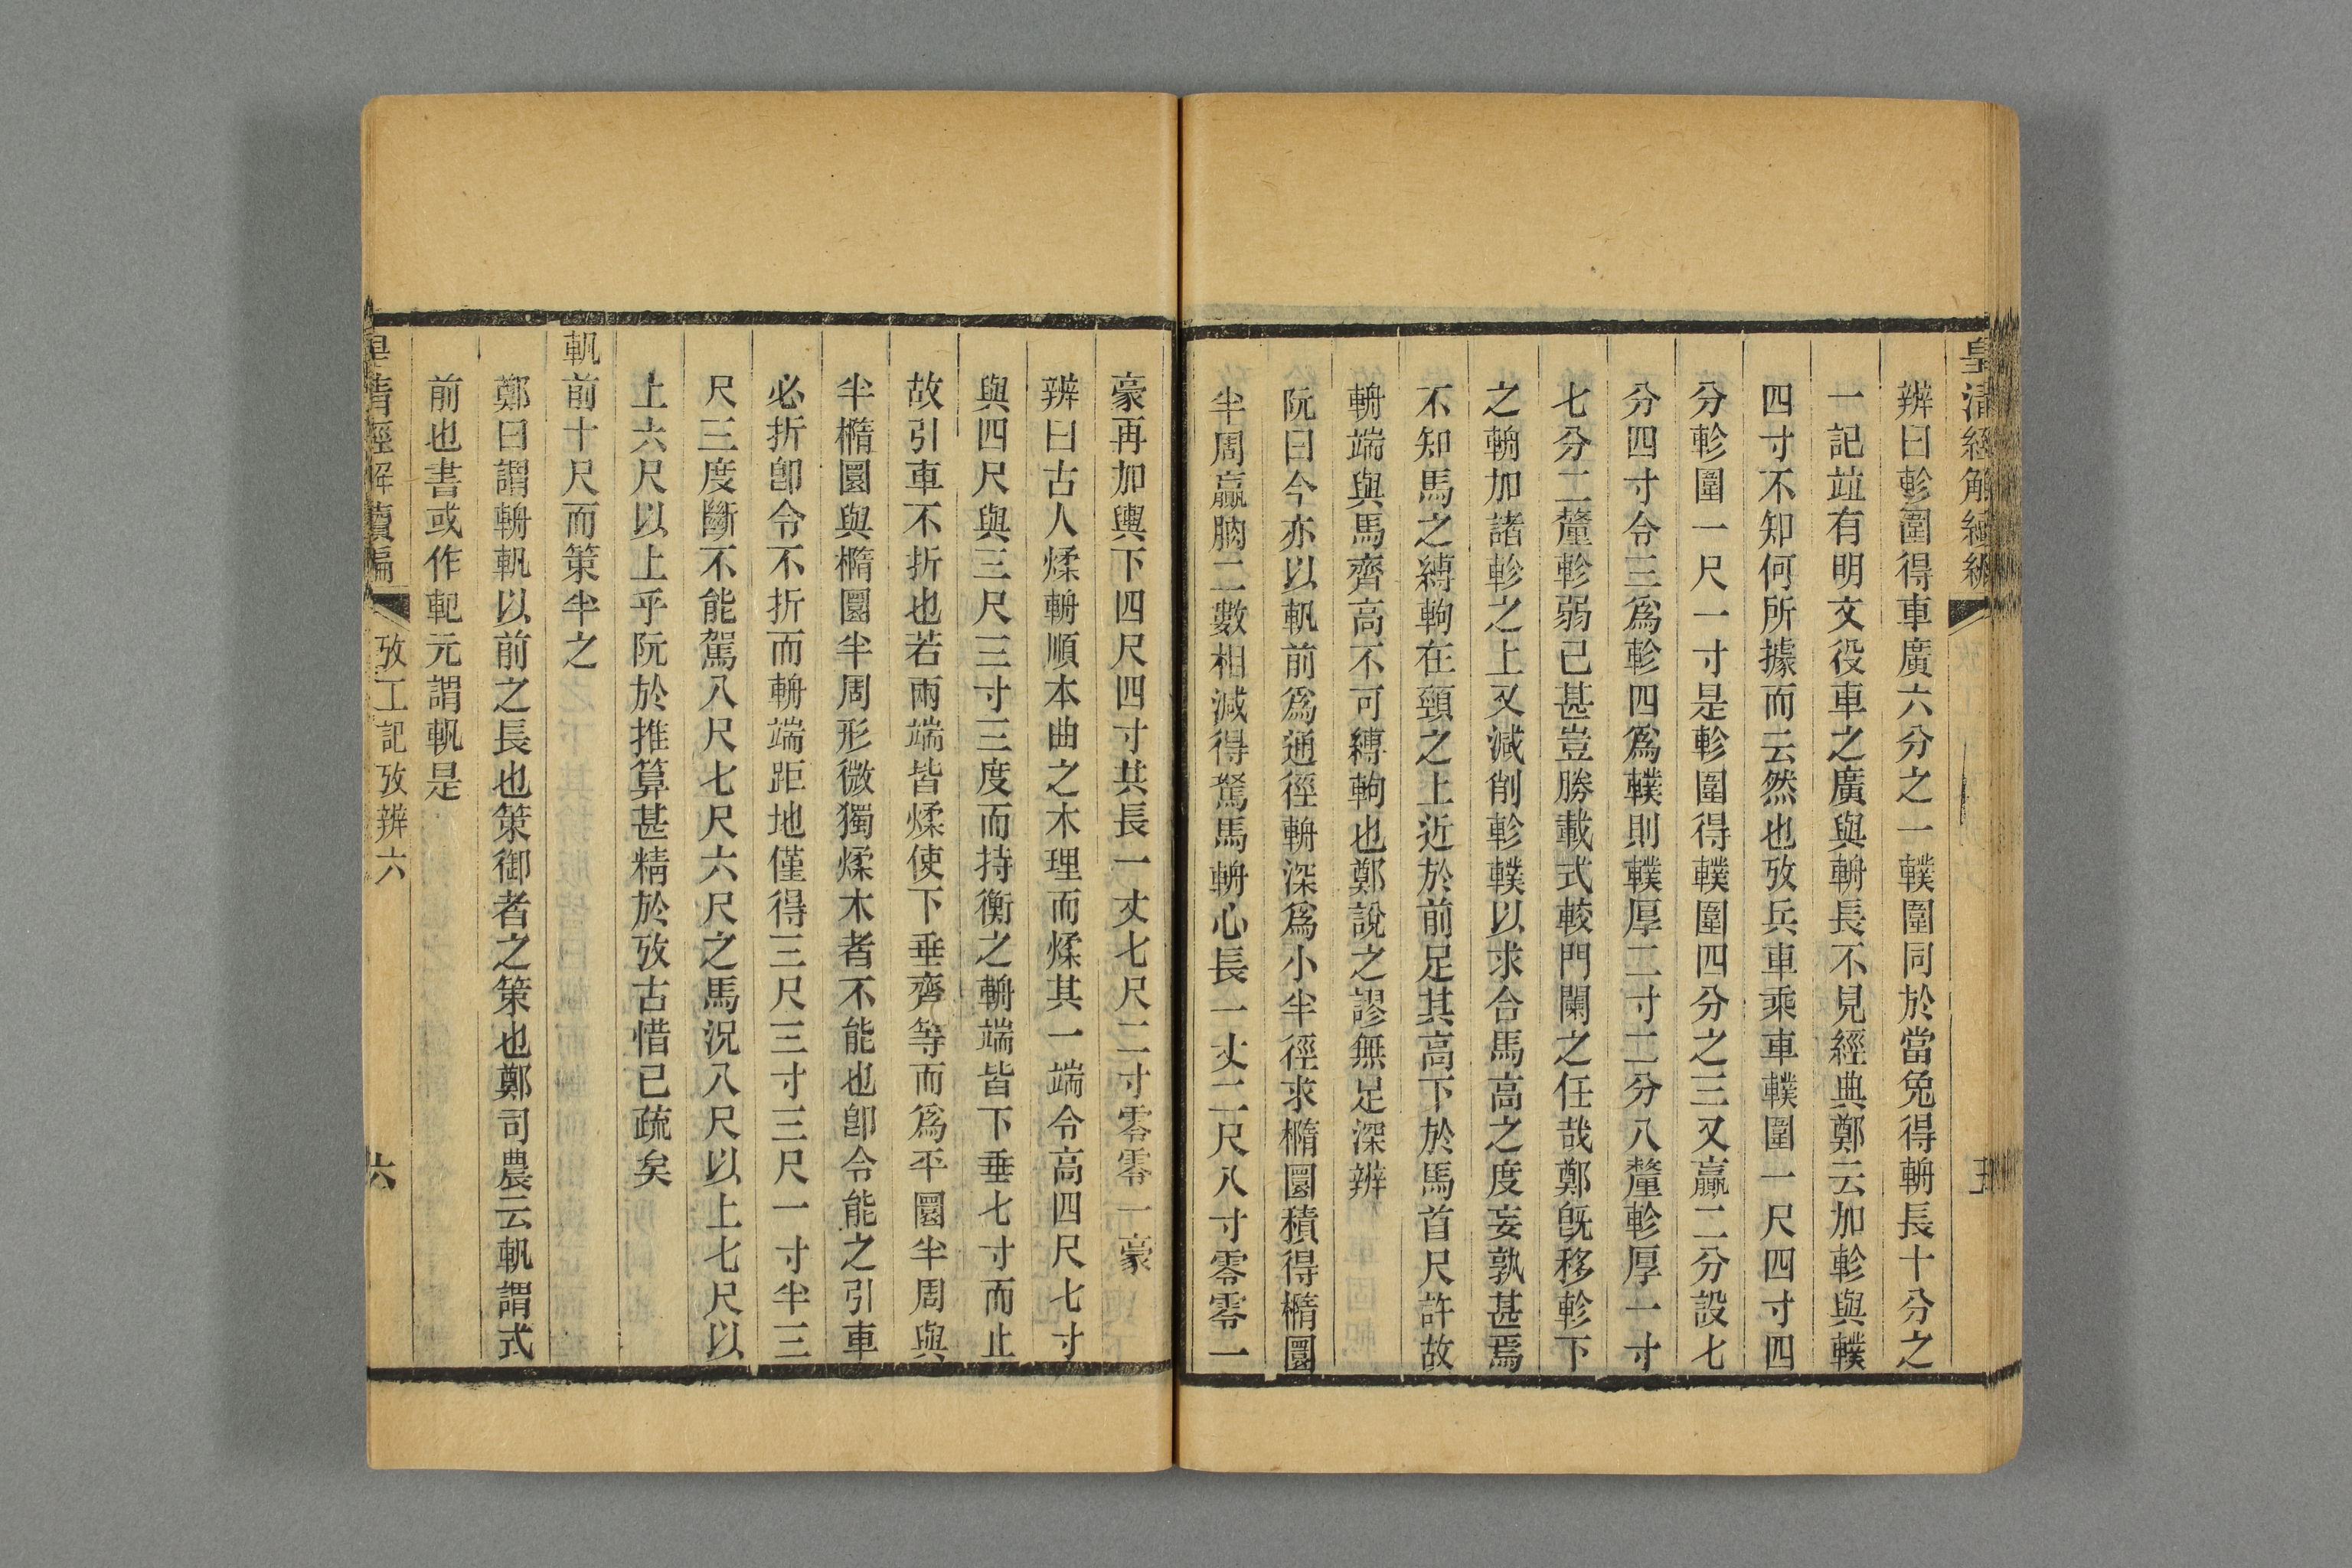 皇清經解續編
辨曰軫圍得車廣六分之一轐圍同於當兔得輈長十分之
一記竝有明文役車之廣與輈長不見經典鄭云加軫與轐
四寸不知何所據而云然也攷兵車乘車轐圍一尺四寸四
分軫圍一尺一寸是軫圍得轐圍四分之三又贏二分設七
分四寸令三爲軫四爲轐則轐厚二寸二分八釐軫厚一寸
七分二釐軫弱已甚豈勝載式較門闌之任哉鄭旣移軫下
之輈加諸軫之上又減削軫轐以求合馬高之度妄孰甚焉
不知馬之縛軥在頸之上近於前足其高下於馬首尺許故
輈端與馬齊高不可縛軥也鄭說之謬無足深辨
阮曰今亦以軓前爲通徑輈深爲小半徑求橢圜積得橢圜
半周贏朒二數相減得駑馬輈心長一丈二尺八寸零零一
豪再加輿下四尺四寸共長一丈七尺二寸零零一豪
辨曰古人煣輈順本曲之木理而煣其一端令高四尺七寸
與四尺與三尺三寸三度而持衡之輈端皆下垂七寸而止
故引車不折也若兩端皆煣使下垂齊等而爲平圜半周與
半橢圜與橢圜半周形微獨煣木者不能也卽令能之引車
必折卽令不折而輈端距地僅得三尺三寸三尺一寸半三
尺三度斷不能駕八尺七尺六尺之馬況八尺以上七尺以
上六尺以上乎阮於推算甚精於攷古惜已疏矣
軓前十尺而策半之
鄭曰謂輈軓以前之長也策御者之策也鄭司農云軓謂式
前也書或作軋元謂軓是
皇清經解續編
攷工記攷辨六
六